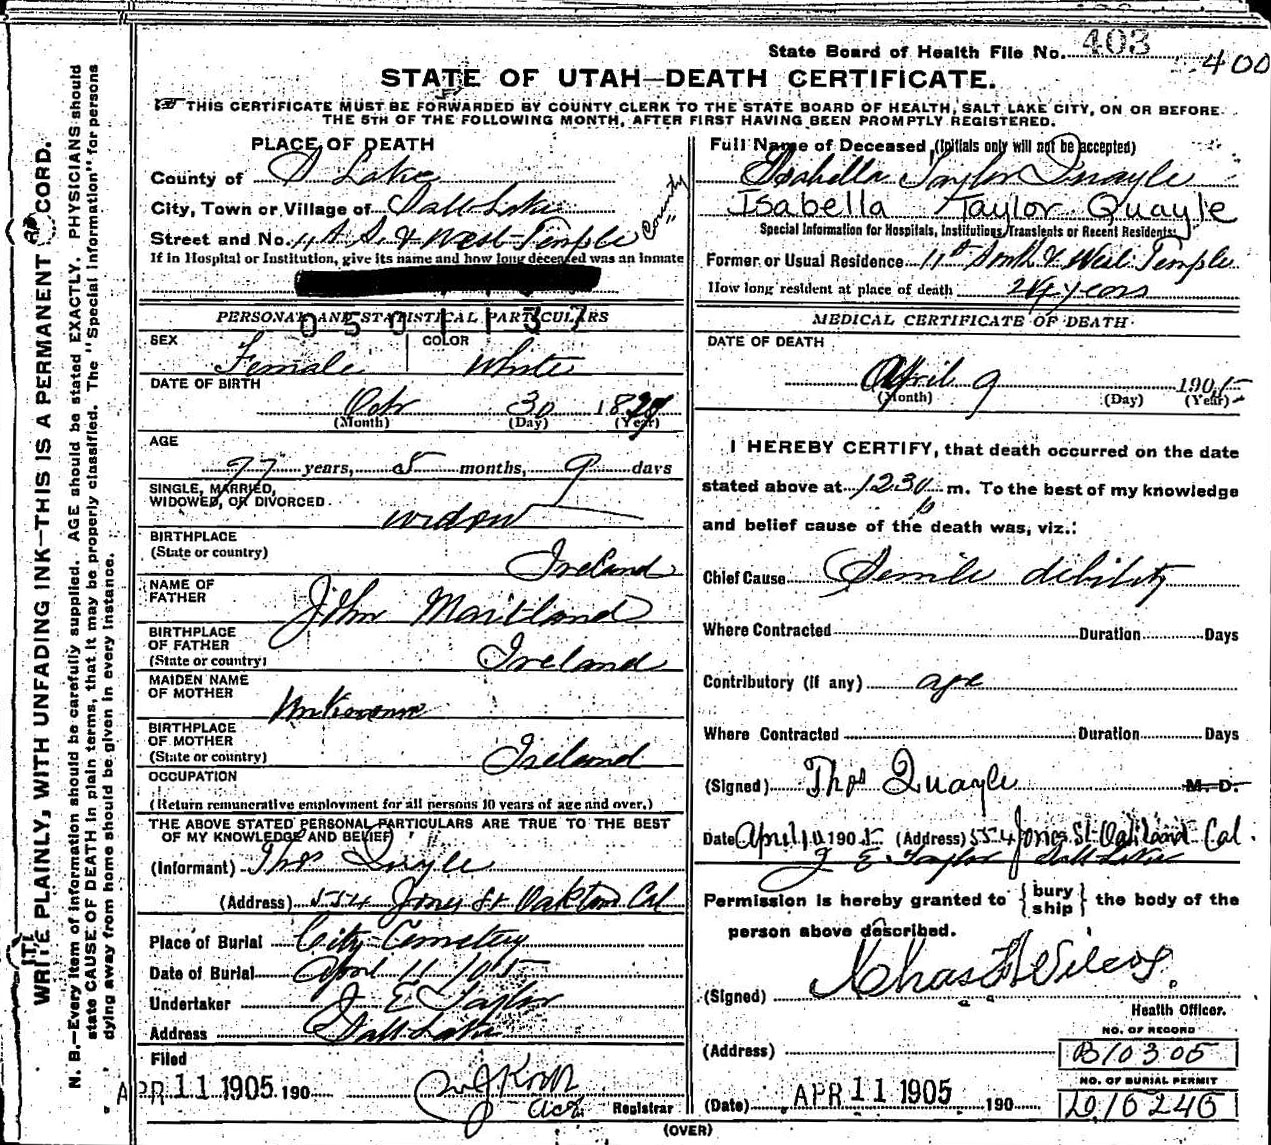 State Board of Health File No. 403
400
STATE OF UTAH—DEATH CERTIFICATE.
THIS CERTIFICATE MUST BE FORWARDED BY COUNTY CLERK TO THE STATE BOARD OF HEALTH, SALT LAKE CITY, ON OR BEFORE
THE 5TH OF THE FOLLOWING MONTH, AFTER FIRST HAVING BEEN PROMPTLY REGISTERED.
WRITE PLAINLY, WITH UNFADING INK—THIS IS A PERMANENT RECORD.
N. B.—Every item of information should be carefully supplied. AGE should be stated EXACTLY. PHYSICIANS should
state CAUSE OF DEATH in plain terms, that it may be properly classified. The "Special Information" for persons
dying away from home should be given in every instance.
PLACE OF DEATH
County of S Lake
City, Town or Village of Salt Lake
County
Street and No. 11 S. & West Temple
If in Hospital or Institution, give its name and how long deceased was an inmate
0501137
PERSONAL AND STATISTICAL PARTICULARS
SEX Female COLOR White
DATE OF BIRTH
Oct 30 18
(Month) (Day) (Year)
AGE
77 years, 5 months, 9 days
SINGLE, MARRIED,
WIDOWED, OR DIVORCED
widow
BIRTHPLACE
(State or country) Ireland
NAME OF
FATHER John Maitland
BIRTHPLACE
OF FATHER
(State or country) Ireland
MAIDEN NAME
OF MOTHER Unknown
BIRTHPLACE
OF MOTHER
(State or country) Ireland
OCCUPATION
(Return remunerative employment for all persons 10 years of age and over.)
THE ABOVE STATED PERSONAL PARTICULARS ARE TRUE TO THE BEST
OF MY KNOWLEDGE AND BELIEF
(Informant) Thos Quayle
(Address) 554 Jones St Oakland Cal
Place of Burial City Cemetery
Date of Burial April 11 1905
Undertaker J E Taylor
Address Salt Lake
Filed
APR 11 1905 190
Registrar
Full Name of Deceased (Initials only will not be accepted)
Isabella Taylor Quayle
Isabella Taylor Quayle
Special Information for Hospitals, Institutions, Transients or Recent Residents:
Former or Usual Residence 11th South & West Temple
How long resident at place of death 24 years
MEDICAL CERTIFICATE OF DEATH
DATE OF DEATH
April 9 1905
(Month) (Day) (Year)
I HEREBY CERTIFY, that death occurred on the date
stated above at 1230 p m. To the best of my knowledge
and belief cause of the death was, viz.:
Chief Cause Senile debility
Where Contracted Duration Days
Contributory (if any) age
Where Contracted Duration Days
(Signed) Thos Quayle M. D.
Date April 10 1905 (Address) 554 Jones St Oakland Cal.
J E Taylor Salt Lake
Permission is hereby granted to { bury ship } the body of the
person above described.
(Signed) Chas Wilcox
Health Officer.
(Address)
NO. OF RECORD
B10305
NO. OF BURIAL PERMIT
D16246
(Date) APR 11 1905 190
(OVER)